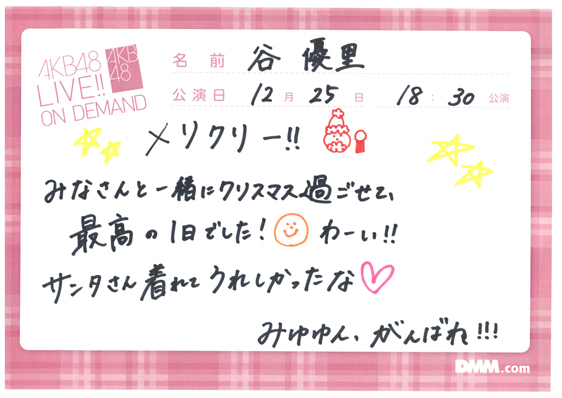 AKB48
LIVE!!
ON DEMAND
AKB
48
名 前 谷 優里
公演日 12 月 25 日 18 : 30 公演
メリクリー!!
みなさんと一緒にクリスマス過ごせて、
最高の1日でした! わーい!!
サンタさん着れてうれしかったな
みゆゆん、がんばれ!!!
DMM.com